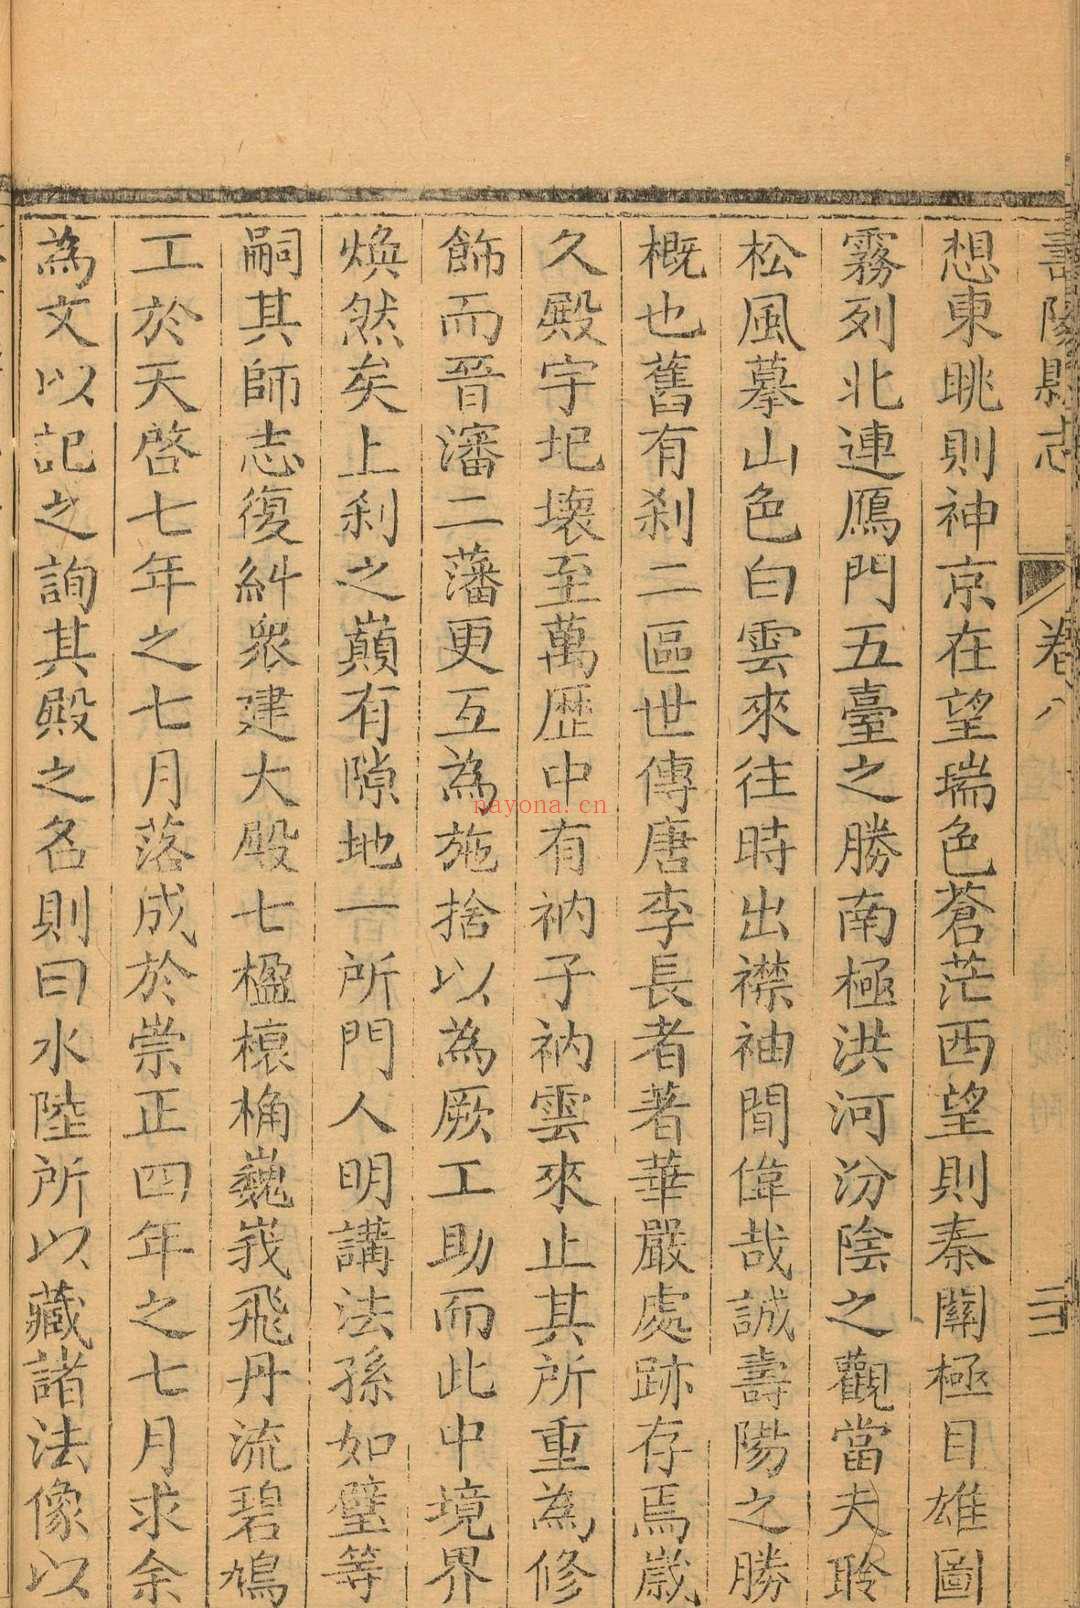 壽陽縣志 卷八 二十
想東眺則神京在望瑞色蒼茫西望則秦關極目雄圖
霧列北連鴈門五臺之勝南極洪河汾陰之觀當夫聆
松風摹山色白雲來往時出襟袖間偉哉誠壽陽之勝
概也舊有刹二區世傳唐李長者著華嚴處跡存焉嵗
久殿宇圮壊至萬歴中有衲子衲雲來止其所重為修
飾而晉瀋二藩更互為施捨以為厥工助而此中境界
煥然矣上刹之巔有隙地一所門人明講法孫如璧等
嗣其師志復糾衆建大殿七楹榱桷巍峩飛丹流碧鳩
工於天啓七年之七月落成於崇正四年之七月求余
為文以記之詢其殿之名則曰水陸所以藏諸法像以
nayona.cn